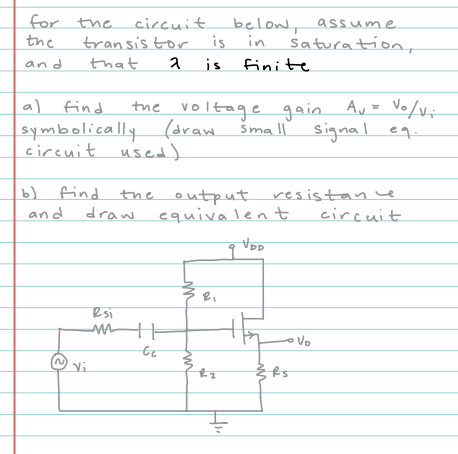 for the circuit below, assume
the transistor is in saturation,
and that λ is finite
a) find the voltage gain Av = Vo/Vi
symbolically (draw small signal eq.
circuit used)
b) find the output resistance
and draw equivalent circuit
VDD
R1
Rsi
Cc
Vo
Vi
R2
Rs